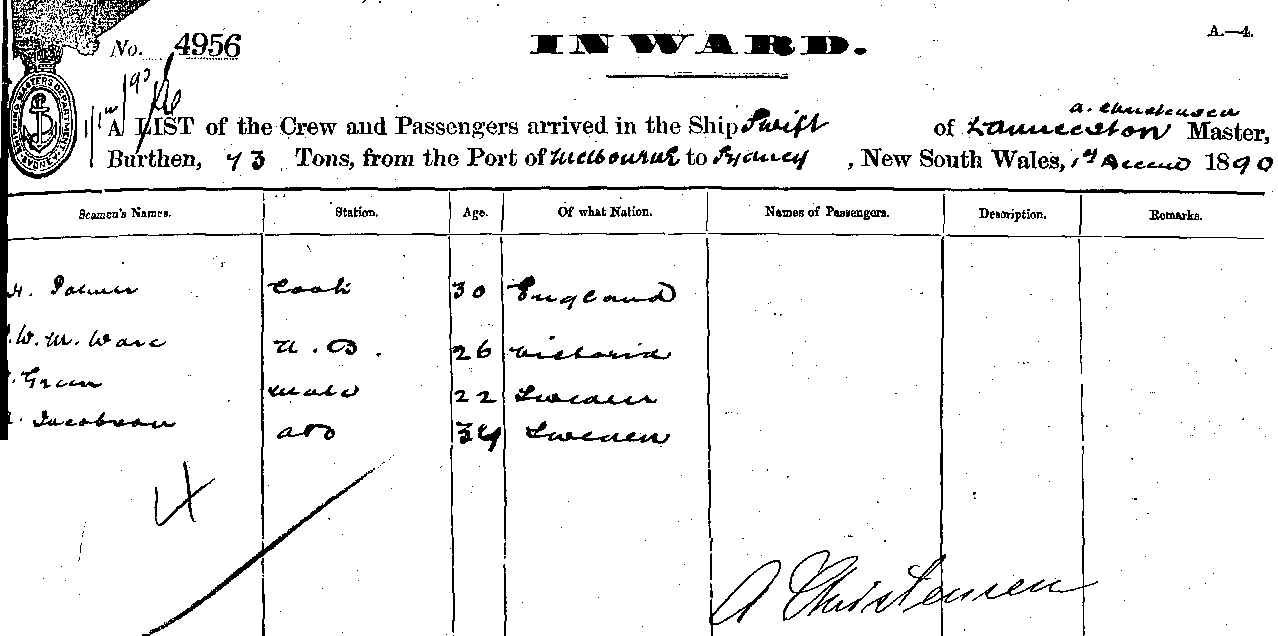 No. 4956
INWARD.
A.—4.
A. Christensen
A LIST of the Crew and Passengers arrived in the Ship Swift of Launceston Master,
Burthen, 73 Tons, from the Port of Melbourne to Sydney, New South Wales, 1st 1890
Seamen's Names. Station. Age. Of what Nation. Names of Passengers. Description. Remarks.
H. Cook 30 England
W. M. Ware A.B. 26 Victoria
Green 22 Sweden
Jacobson Sweden
4
A Christensen